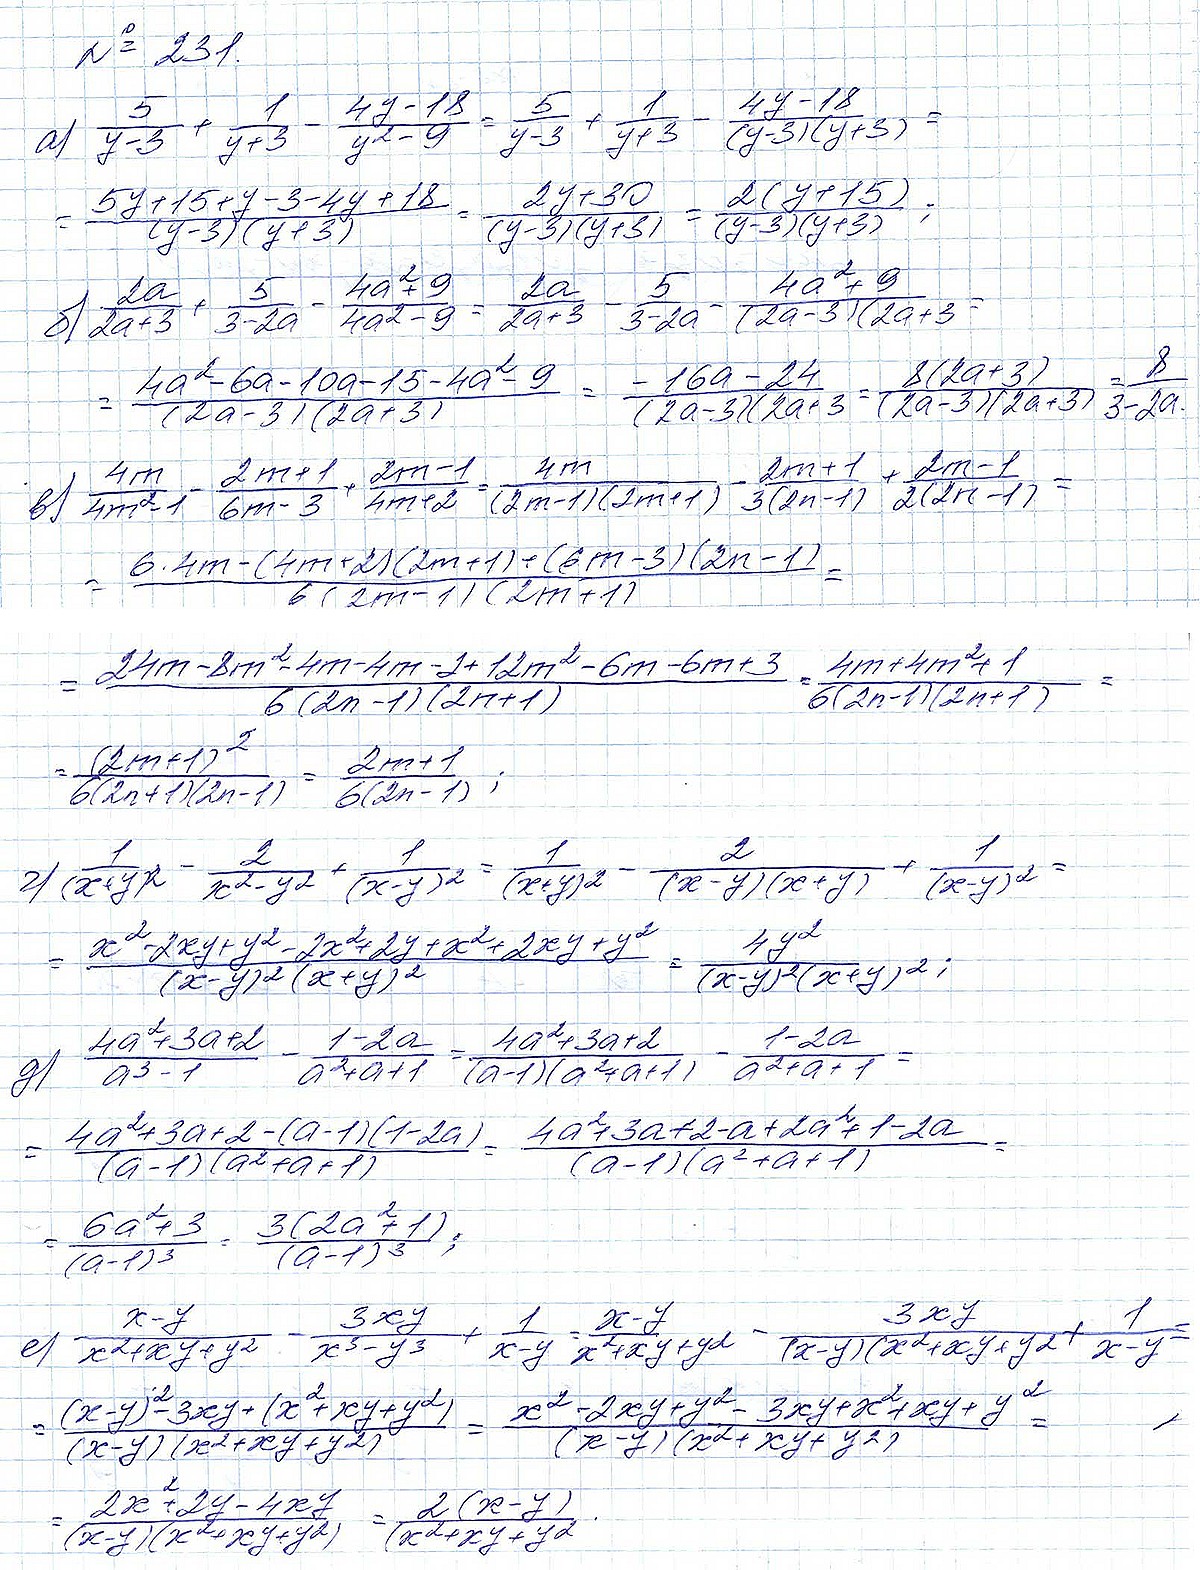 № 231.
а) 5/(y-3) + 1/(y+3) - (4y-18)/(y²-9) = 5/(y-3) + 1/(y+3) - (4y-18)/((y-3)(y+3)) =
= (5y+15+y-3-4y+18)/((y-3)(y+3)) = (2y+30)/((y-3)(y+3)) = 2(y+15)/((y-3)(y+3));
б) 2a/(2a+3) + 5/(3-2a) - (4a²+9)/(4a²-9) = 2a/(2a+3) - 5/(3-2a) - (4a²+9)/((2a-3)(2a+3 =
= (4a²-6a-10a-15-4a²-9)/((2a-3)(2a+3)) = (-16a-24)/((2a-3)(2a+3 = 8(2a+3)/((2a-3)(2a+3)) = 8/(3-2a).
в) 4m/(4m²-1) - (2m+1)/(6m-3) + (2m-1)/(4m+2) = 4m/((2m-1)(2m+1)) - (2m+1)/(3(2n-1)) + (2m-1)/(2(2n-1)) =
= (6·4m-(4m+2)(2m+1)+(6m-3)(2n-1))/(6(2m-1)(2m+1)) =
= (24m-8m²-4m-4m-2+12m²-6m-6m+3)/(6(2n-1)(2n+1)) = (4m+4m²+1)/(6(2n-1)(2n+1)) =
= (2m+1)²/(6(2n+1)(2n-1)) = (2m+1)/(6(2n-1));
г) 1/(x+y)² - 2/(x²-y²) + 1/(x-y)² = 1/(x+y)² - 2/((x-y)(x+y)) + 1/(x-y)² =
= (x²-2xy+y²-2x²+2y+x²+2xy+y²)/((x-y)²(x+y)²) = 4y²/((x-y)²(x+y)²);
д) (4a²+3a+2)/(a³-1) - (1-2a)/(a²+a+1) = (4a²+3a+2)/((a-1)(a²+a+1)) - (1-2a)/(a²+a+1) =
= (4a²+3a+2-(a-1)(1-2a))/((a-1)(a²+a+1)) = (4a²+3a+2-a+2a²+1-2a)/((a-1)(a²+a+1)) =
= (6a²+3)/(a-1)³ = 3(2a²+1)/(a-1)³;
е) (x-y)/(x²+xy+y²) - 3xy/(x³-y³) + 1/(x-y) = (x-y)/(x²+xy+y²) - 3xy/((x-y)(x²+xy+y²) + 1/(x-y) =
= ((x-y)²-3xy+(x²+xy+y²))/((x-y)(x²+xy+y²)) = (x²-2xy+y²-3xy+x²+xy+y²)/((x-y)(x²+xy+y²)) =
= (2x²+2y-4xy)/((x-y)(x²+xy+y²)) = 2(x-y)/(x²+xy+y².